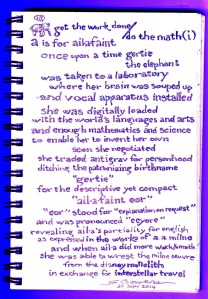 get the work done
do the math(i)
a is for ailafaint
once upon a time gertie
the elephant
was taken to a laboratory
where her brain was souped up
and vocal apparatus installed
she was digitally loaded
with the world's languages and arts
and enough mathematics and science
to enable her to invent her own
soon she negotiated
she traded antigrav for personhood
ditching the patronizing birthname
"gertie"
for the descriptive yet compact
"ailafaint eor"
"eor" stood for "explanation on request"
and was pronounced "eeyore"
revealing aila's partiality for english
as expressed in the works of a a milne
and when aila did more work & math
she was able to wrest the milne oeuvre
from the disney monolith
in exchange for interstellar travel